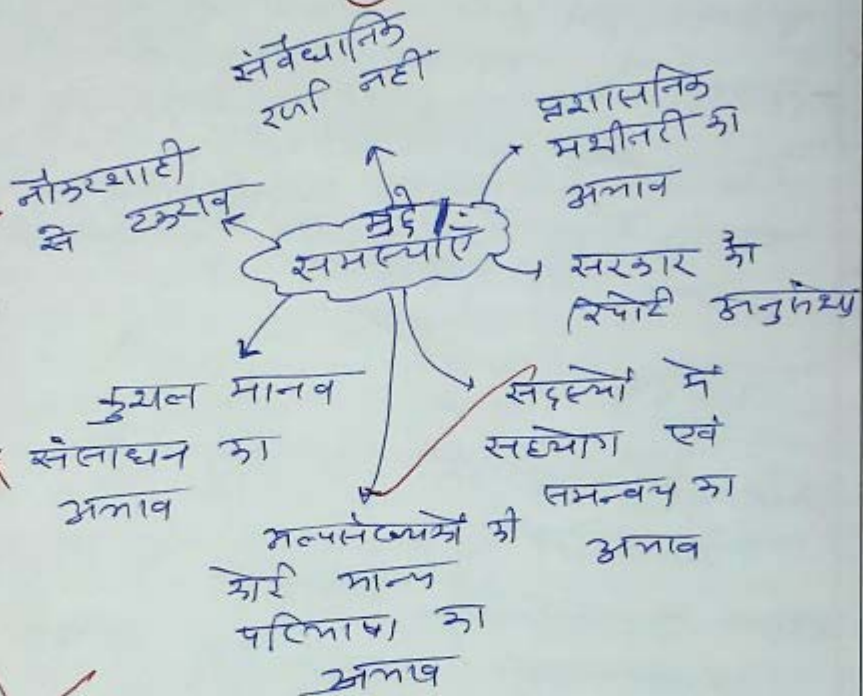 संवैधानिक
दर्जा नहीं
प्रशासनिक
मशीनरी का
अभाव
नौकरशाही
से टकराव
मुद्दे /
समस्याएँ
सरकार को
रिपोर्ट अनुशंसा
कुशल मानव
संसाधन का
अभाव
सदस्यों में
सहयोग एवं
समन्वय का
अभाव
अल्पसंख्यकों की
कोई मान्य
परिभाषा का
अभाव